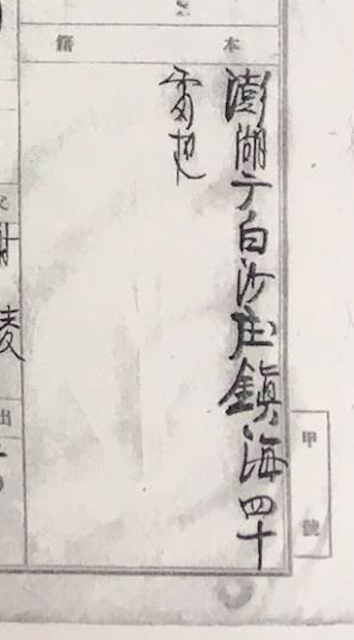 本籍
澎湖庁白沙庄鎮海四十
番地
甲號
出